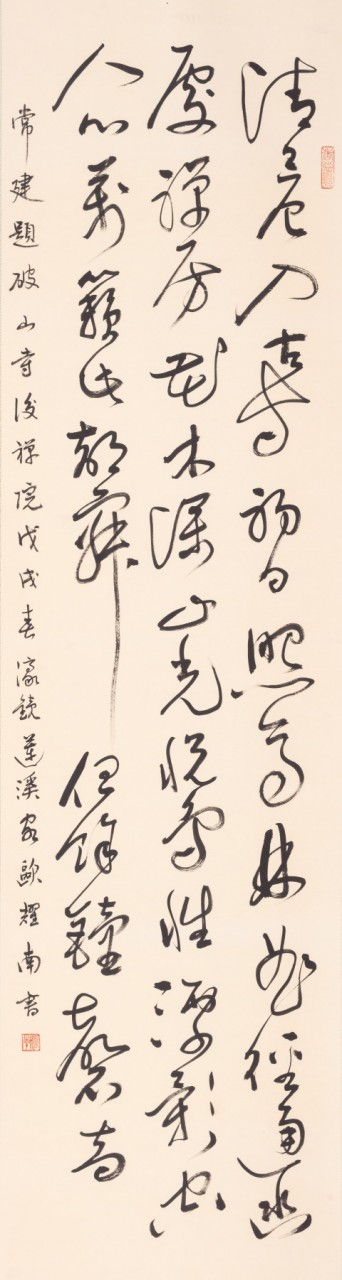 清晨入古寺初日照高林曲徑通幽
處禪房花木深山光悅鳥性潭影空
人心萬籟此都寂但餘鐘磬音
常建題破山寺後禪院戊戌春濠鏡蓮溪歐耀南書